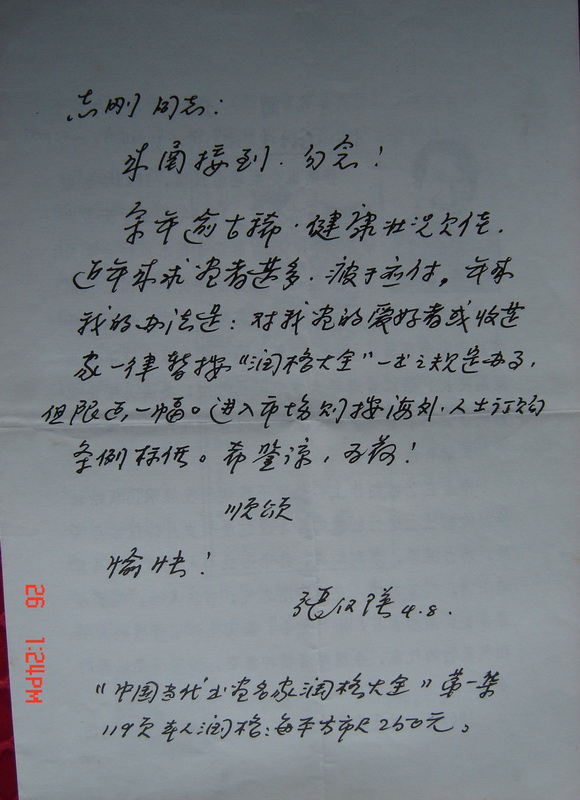 志刚同志:
来函接到.勿念!
余年逾古稀.健康状况欠佳.
近年来求画者甚多.疲于应付。年来
我的办法是:对我画的爱好者或收进
家一律暂按“润格大全”一书之规定办了,
但限一幅。进入市场则按海外.人士订购
条例标价。希鉴谅,为荷!
顺颂
愉快!
張 4.8.
“中国当代书画名家润格大全”第一集
119页本人润格:每平方市尺2500元。
26 1:24PM